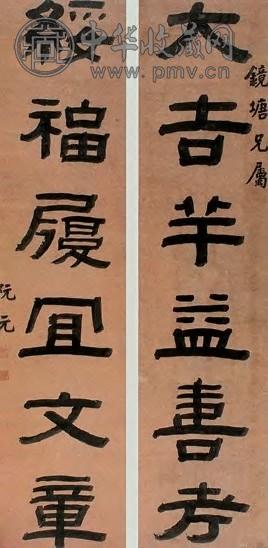 中华收藏网
www.pmv.cn
大吉羊益壽考
鏡塘兄屬
綏福履宜文章
阮元